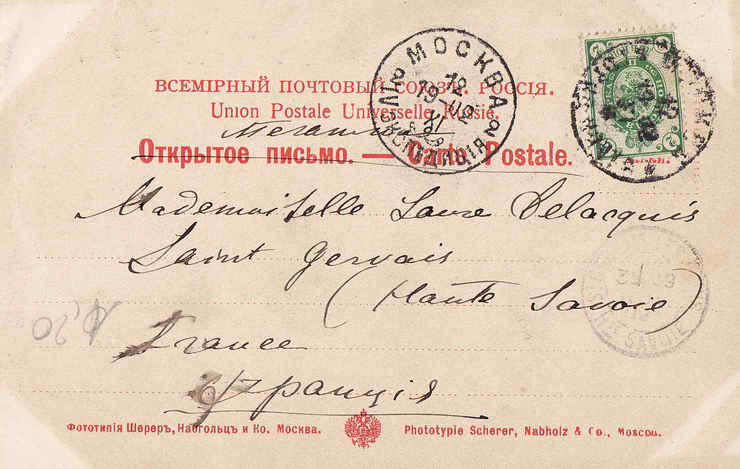 ВСЕМІРНЫЙ ПОЧТОВЫЙ СОЮЗЪ. РОССІЯ.
Union Postale Universelle. Russie.
Открытое письмо. — Carte Postale.
МОСКВА
Mademoiselle Laure Delacquis
Saint Gervais
(Haute Savoie)
France
Франція
1,20
Фототипія Шереръ, Набгольцъ и Ко. Москва.
Phototypie Scherer, Nabholz & Co., Moscou.